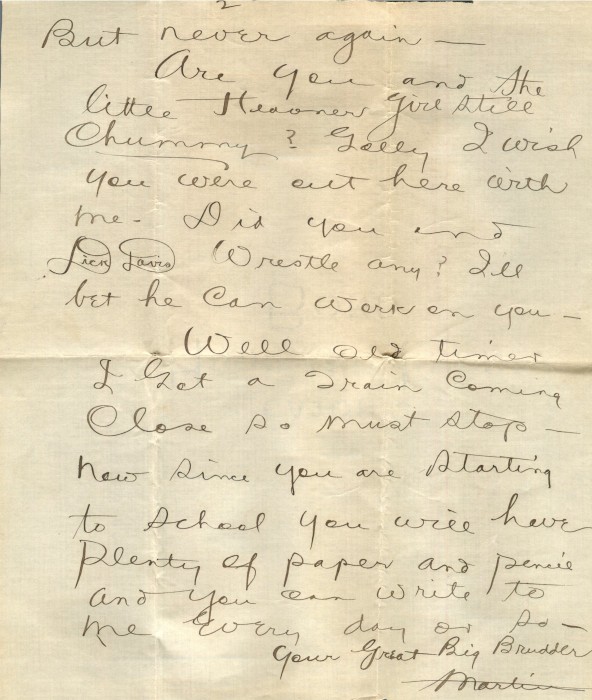 2
But never again —
Are you and the
little Heavner girl still
Chummy? Golly I wish
you were out here with
me - Did you and
Dick Davis Wrestle any? I'll
bet he Can work on you —
Well old timer
I Got a Train Coming
Close so must stop —
now since you are starting
to school you will have
Plenty of paper and pencil
and you can write to
me Every day or so —
your Great Big Brudder
Martin